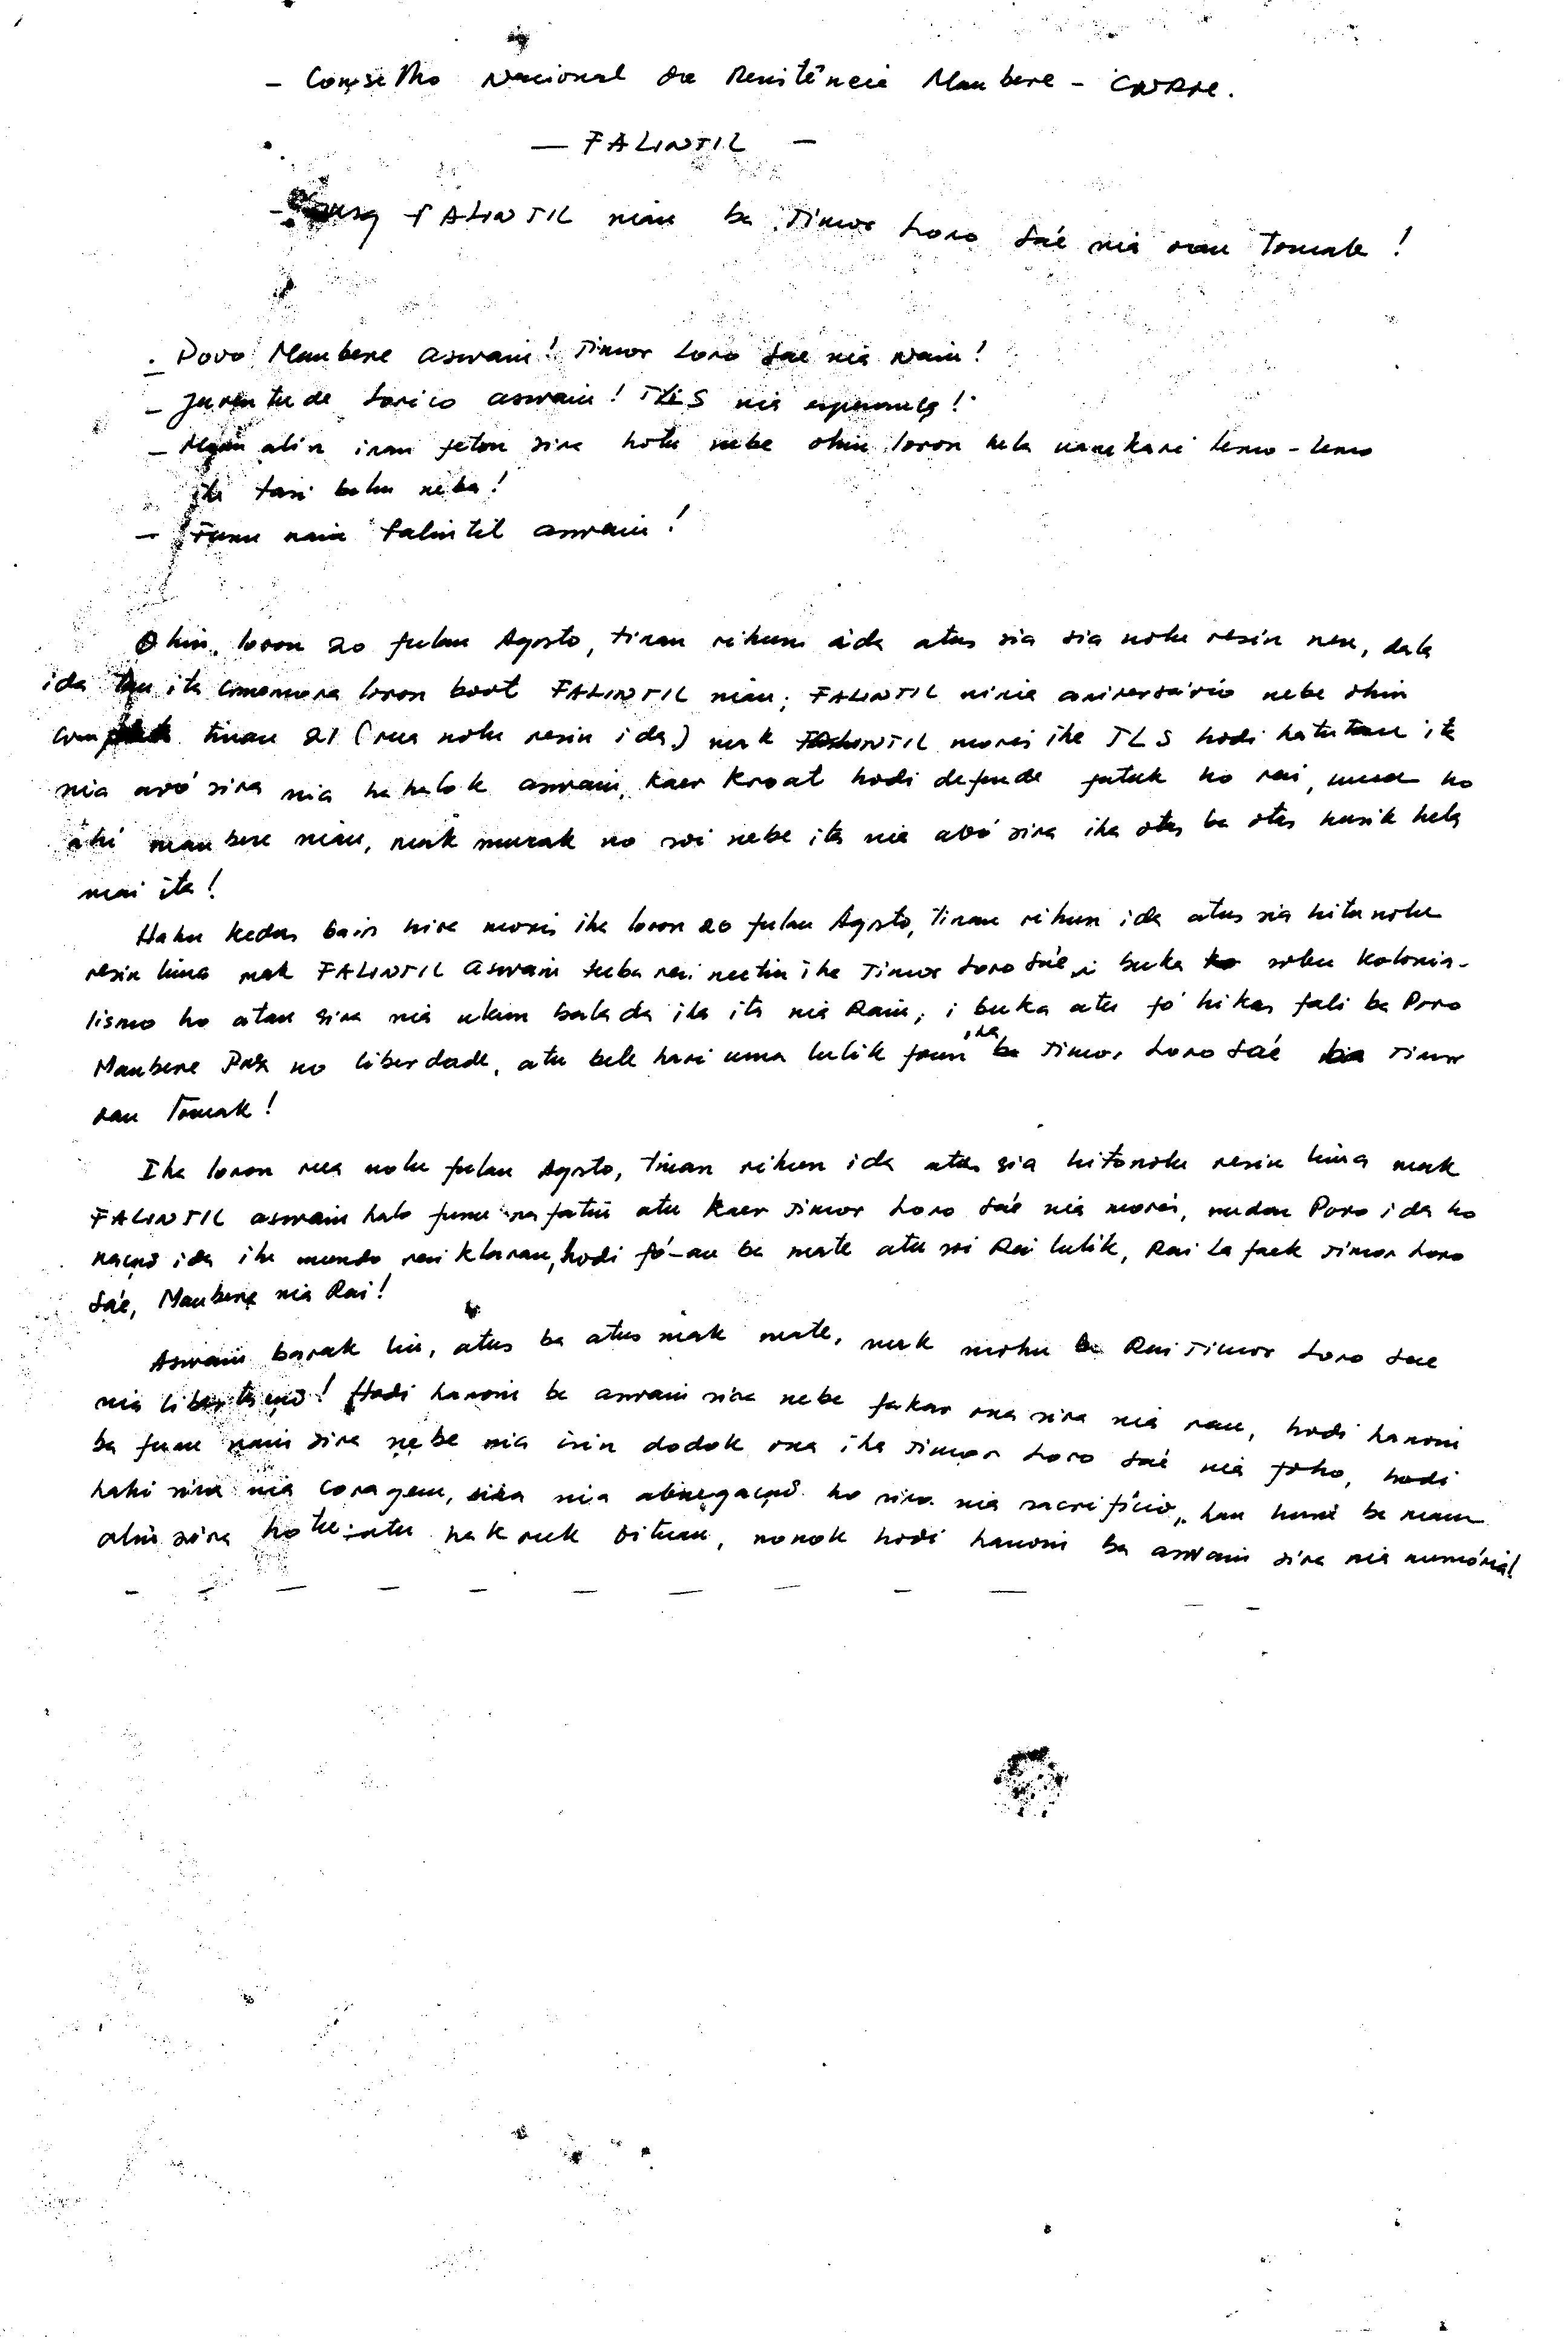 - Conselho Nacional da Resistência Maubere - CNRM.
- FALINTIL -
FALINTIL nian ba Timor Loro Sa'e nia oan tomak!
- Povo Maubere aswain! Timor Loro Sae nia Nain!
- Juventude Lorico aswain! TLS nia esperança!
- Maun alin inan feton sira hotu nebe ohin loron hela namkari lemo-lemo
iha tasi balu neba!
- Funu nain Falintil aswain!
Ohin, loron 20 fulan Agosto, tinan rihun ida atus sia sia nolu resin nen, dala
ida tan ita comemora loron boot FALINTIL nian; FALINTIL ninia aniversário nebe ohin
tinan 21 (rua nolu resin ida) mak FALINTIL moris iha TLS hodi hatutan ita
nia avó sira nia hahalok aswain, kaer kroat hodi defende fatuk ho rai, ho
ahi maubere nian, mak murak no soi nebe ita nia avó sira iha otas ba otas husik hela
mai ita!
Hahu kedas bain hira moris iha loron 20 fulan Agosto, tinan rihun ida atus sia hitu nolu
resin lima mak FALINTIL aswain tuba rai metin iha Timor Loro Sa'e, i buka sobu kolonia-
lismo ho atan sira nia ukun balada iha ita nia Rain; i buka atu fó hikas fali ba Povo
Maubere Paz no liberdade, atu bele hari uma lulik foun iha Timor Loro Sa'e ba Timor
oan Tomak!
Iha loron rua nolu fulan Agosto, tinan rihun ida atus sia hitonolu resin lima mak
FALINTIL aswain halo funu nafatin atu kaer Timor Loro Sa'e nia moris, nudar Povo ida ho
nação ida iha mundo rai klaran, hodi fó-an ba mate atu soi Rai lulik, Rai Lafaek Timor Loro
Sa'e, Maubere nia Rai!
Aswain barak liu, atus ba atus mak mate, mak mohu ba Rai Timor Loro Sae
nia libertação! Hodi hanoin ba aswain sira nebe fakar ona sira nia ran, hodi hanoin
ba funu nain sira nebe nia isin dodok ona iha Timor Loro Sa'e nia foho, hodi
hahi sira nia coragem, sira nia abnegação ho sira nia sacrifício, hau husu ba maun
alin sira hotu atu hakruk oituan, nonok hodi hanoin ba aswain sira nia memória!